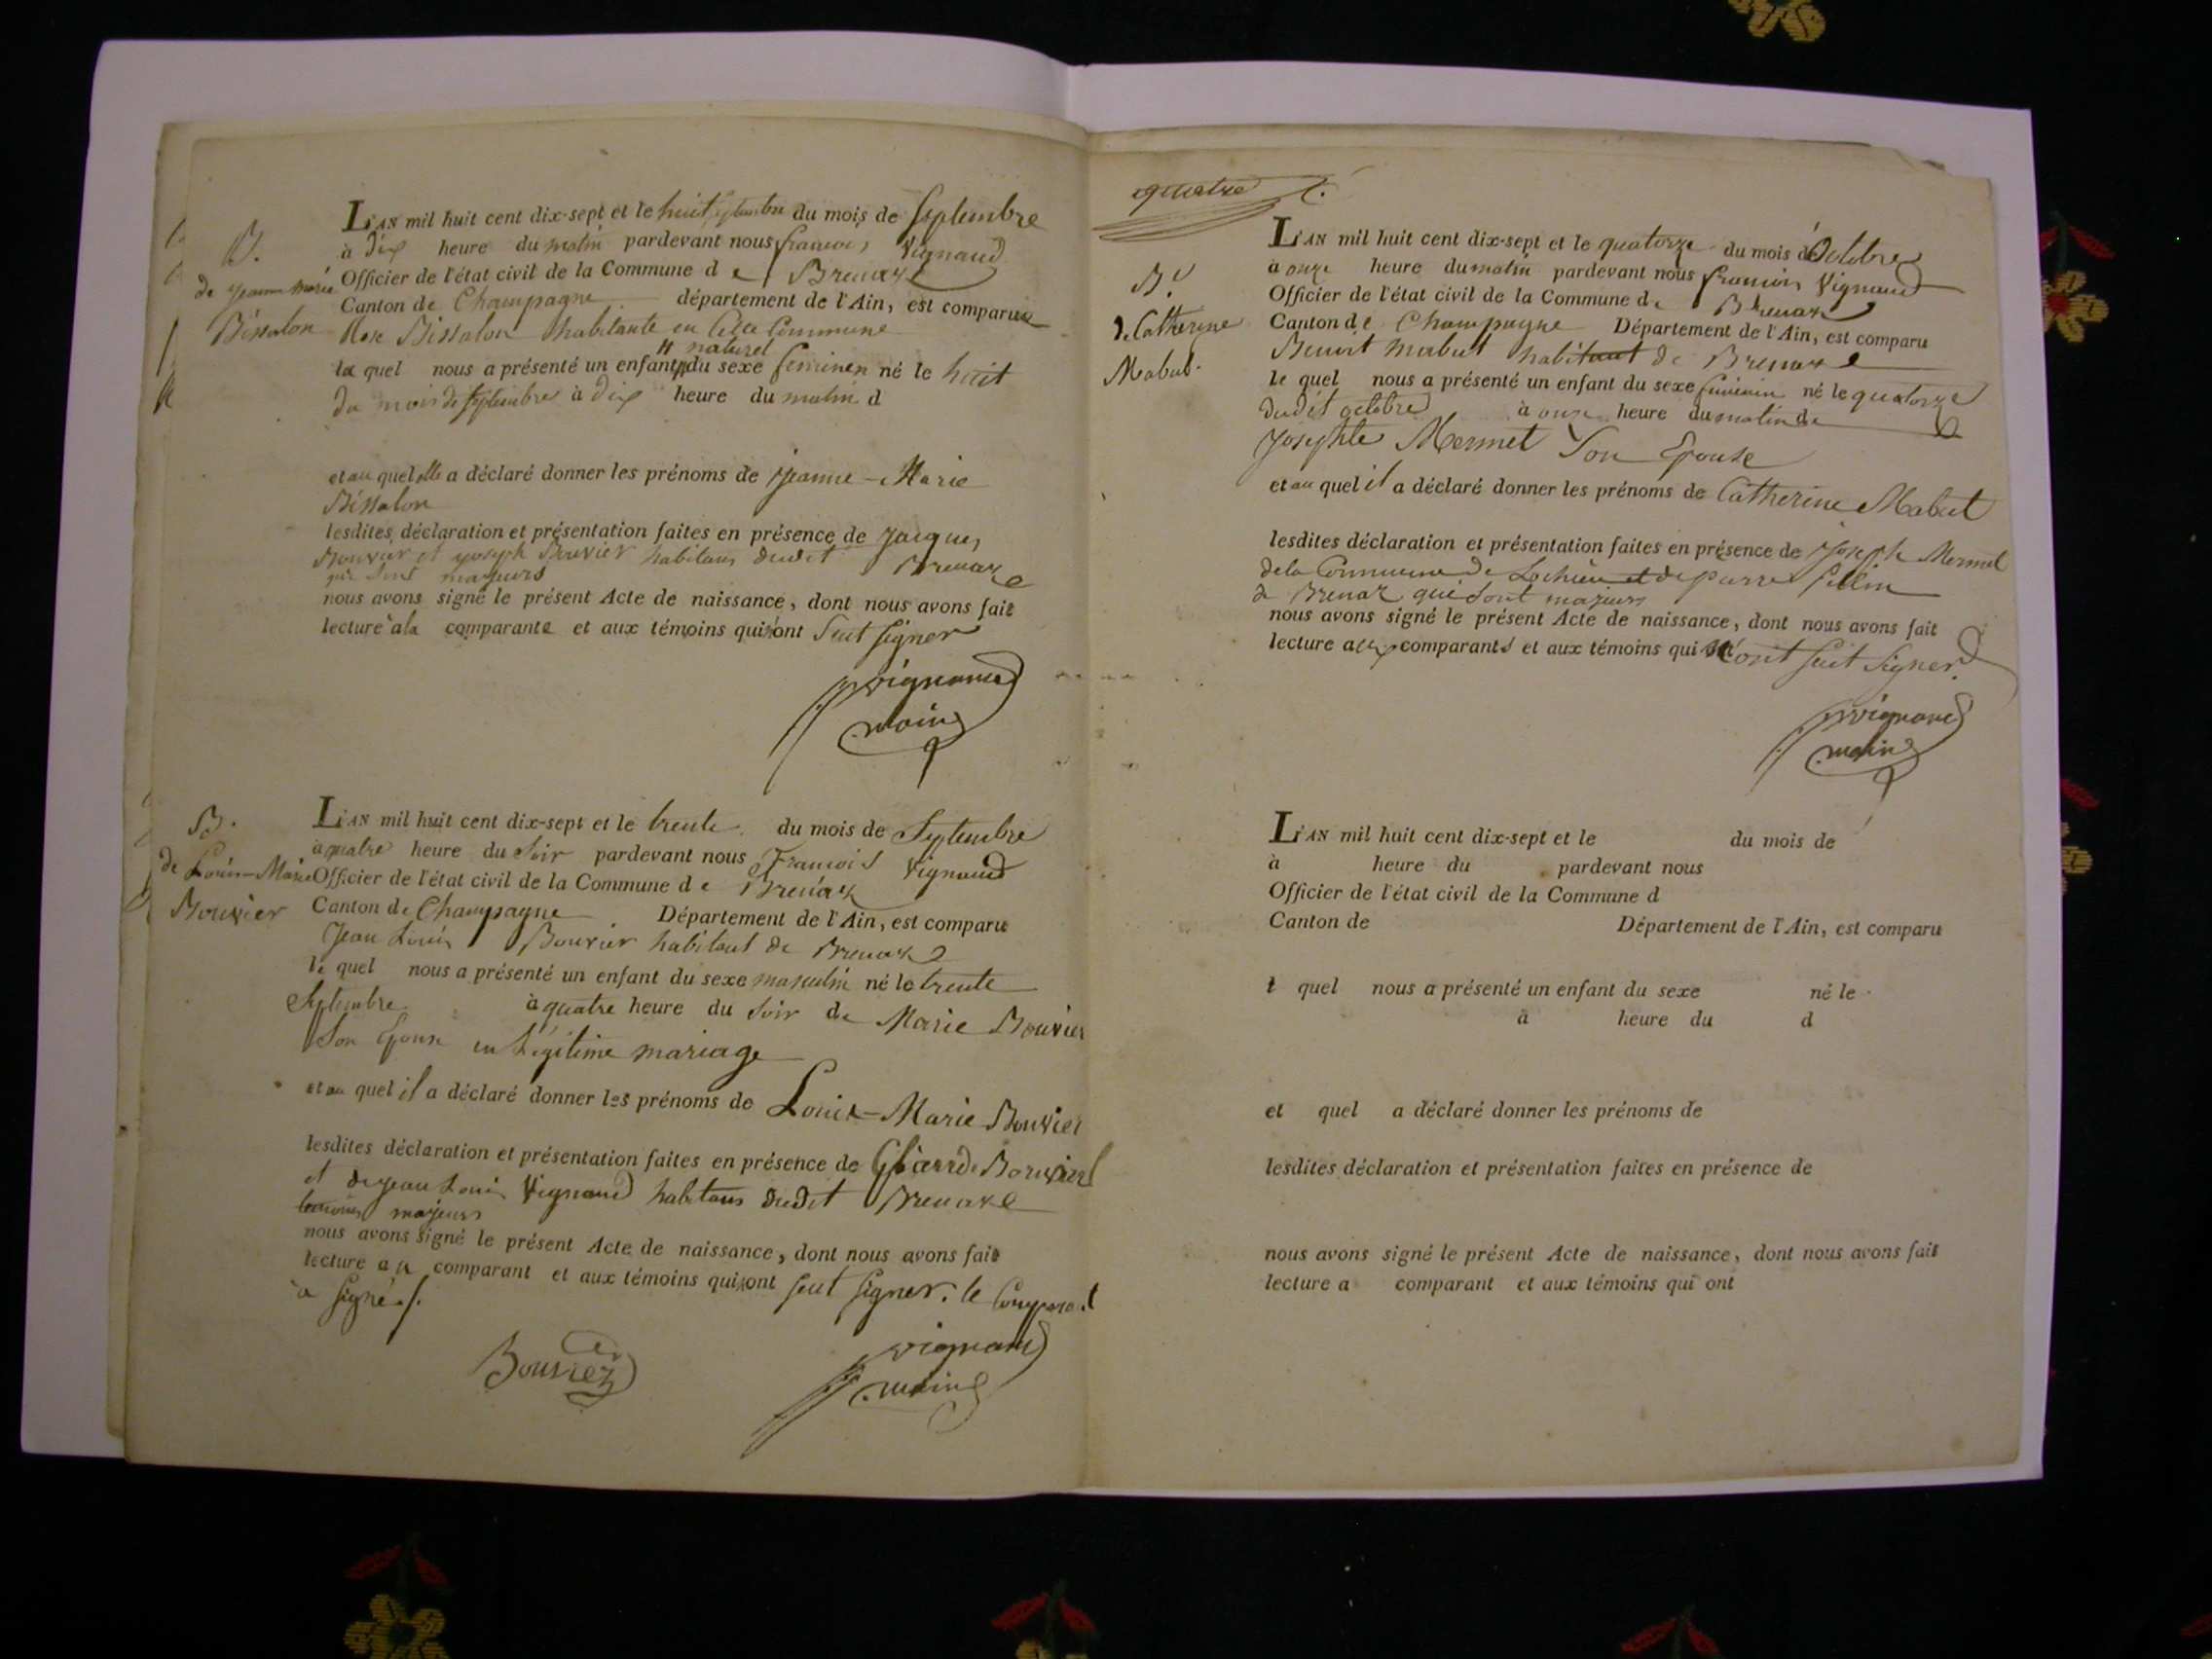 B.
de Jeanne Marie
Bissalon
L'AN mil huit cent dix-sept et le huit septembre du mois de Septembre
à dix heure du matin pardevant nous francois Vignaud
Officier de l'état civil de la Commune de Brenaz
Canton de Champagne département de l'Ain, est comparue
Bissalon habitante en Cette Commune
naturel
la quel nous a présenté un enfant du sexe feminen né le huit
du mois de septembre à dix heure du matin d
et au quel elle a déclaré donner les prénoms de Jeanne-Marie
Bissalon
lesdites déclaration et présentation faites en présence de Jacques
Bouvier et joseph Bouvier habitans dudit Brenaz
qui sont majeurs
nous avons signé le présent Acte de naissance, dont nous avons fait
lecture à la comparante et aux témoins qui n'ont Seut signer
vignaud
maire
B.
de Louis-Marie
Bouvier
L'AN mil huit cent dix-sept et le trente du mois de Septembre
à quatre heure du Soir pardevant nous Francois Vignaud
Officier de l'état civil de la Commune de Brenaz
Canton de Champagne Département de l'Ain, est comparu
Jean Louis Bouvier habitant de Brenaz
le quel nous a présenté un enfant du sexe masculin né le trente
Septembre à quatre heure du Soir de Marie Bouvier
Son Epouse en Légitime mariage
et au quel il a déclaré donner les prénoms de Louis-Marie Bouvier
lesdites déclaration et présentation faites en présence de Bouvier
et de jean Louis Vignaud habitans dudit Brenaz
majeurs
nous avons signé le présent Acte de naissance, dont nous avons fait
lecture au comparant et aux témoins qui n'ont seut signer. le Comparant
à signé ./.
Bouvier
vignaud
maire
quatre
B.
de Catherine
Mabut.
L'AN mil huit cent dix-sept et le quatorze du mois d'Octobre
à onze heure du matin pardevant nous francois Vignaud
Officier de l'état civil de la Commune de Brenaz
Canton de Champagne Département de l'Ain, est comparu
Benoit Mabut habitant de Brenaz
le quel nous a présenté un enfant du sexe feminin né le quatorze
dudit octobre à onze heure du matin de
Josephte Mermet Son Epouse
et au quel il a déclaré donner les prénoms de Catherine Mabut
lesdites déclaration et présentation faites en présence de Joseph Mermet
de la Commune de Lochieu et de pierre
de Brenaz qui sont majeurs
nous avons signé le présent Acte de naissance, dont nous avons fait
lecture aux comparants et aux témoins qui n'ont seut signer
vignaud
maire
L'AN mil huit cent dix-sept et le du mois de
à heure du pardevant nous
Officier de l'état civil de la Commune d
Canton de Département de l'Ain, est comparu
l quel nous a présenté un enfant du sexe né le
à heure du d
et quel a déclaré donner les prénoms de
lesdites déclaration et présentation faites en présence de
nous avons signé le présent Acte de naissance, dont nous avons fait
lecture a comparant et aux témoins qui ont